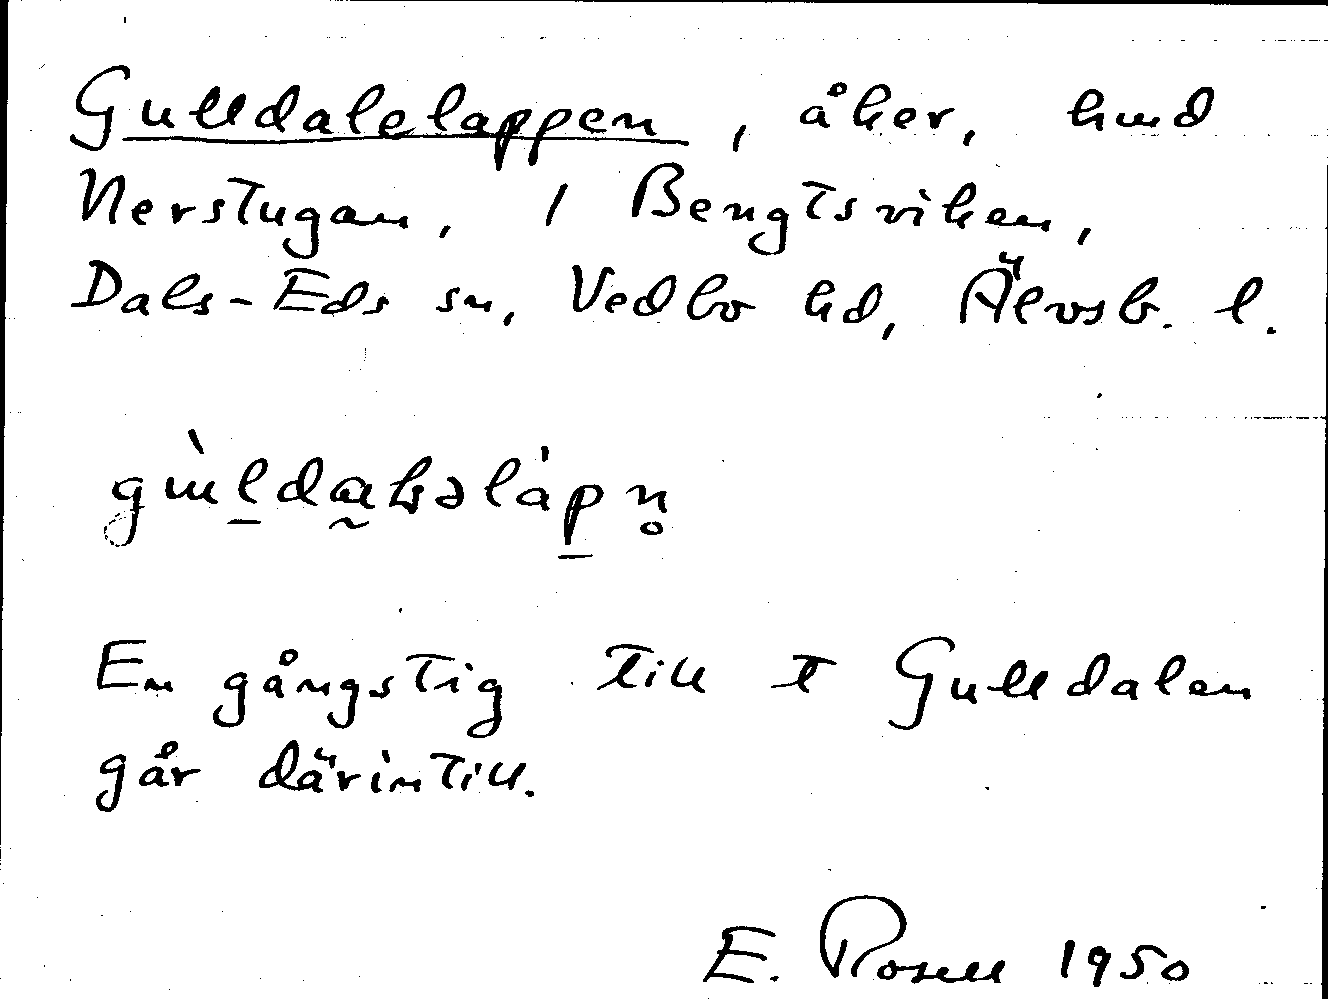 Gulldalelappen, åker, hmd
Nerstugan, 1 Bengtsviken,
Dals-Eds sn, Vedbo hd, Älvsb. l.
En gångstig till t Gulldalen
går därintill.
E. Rosell 1950